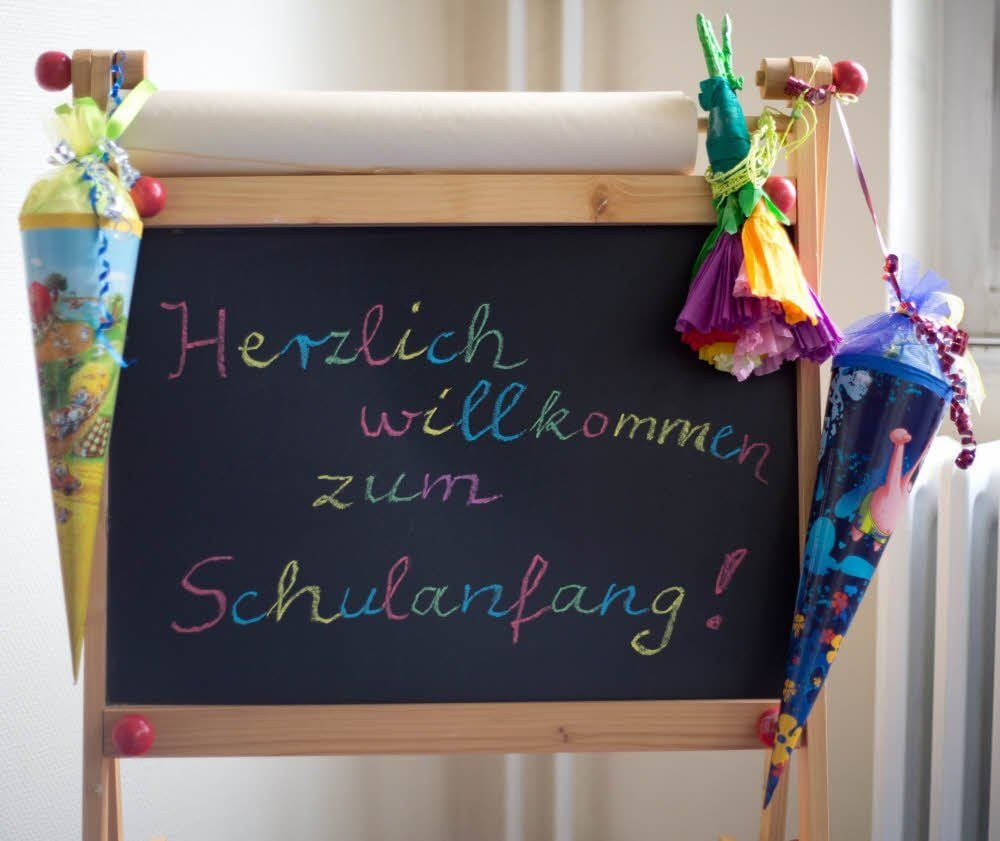 Herzlich
willkommen
zum
Schulanfang!